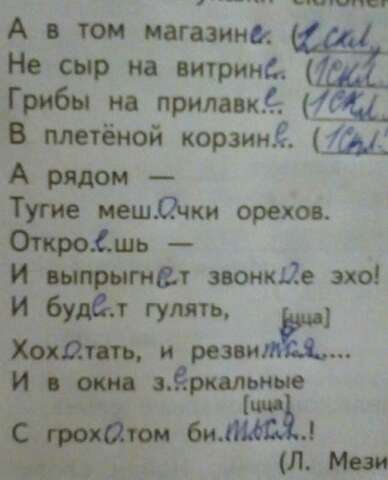 А в том магазине. (2 скл.
Не сыр на витрине.. (1 скл.
Грибы на прилавке.. (1 скл.
В плетёной корзине.. (1 скл.
А рядом —
Тугие меш.о.чки орехов.
Откро.е.шь —
И выпрыгне.т звонк.о.е эхо!
И буде.т гулять,
[цца]
Хох.о.тать, и резвиться....
И в окна з..еркальные
[цца]
С грохо.том би.ться.!
(Л. Мези